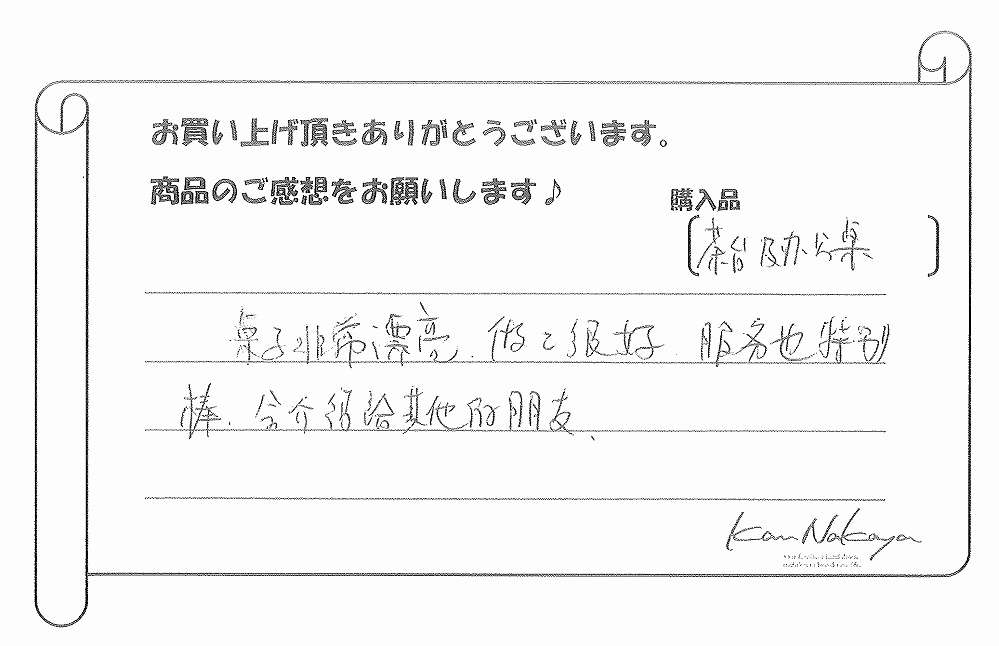 お買い上げ頂きありがとうございます。
商品のご感想をお願いします♪
購入品
茶台及办公桌
桌子非常漂亮、做工很好、服务也特别
棒、会介绍给其他的朋友、
Kan Nakaya